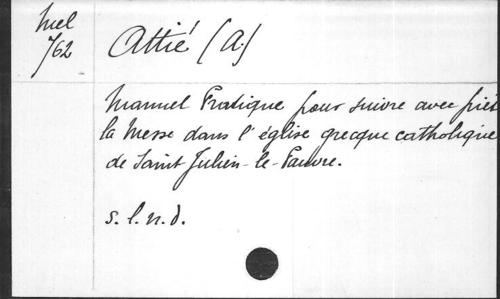 Mel
762
Attié (A.)
Manuel Pratique pour suivre avec piét
la Messe dans l'église grecque catholique
de Saint Julien-le-Pauvre.
s. l. n. d.